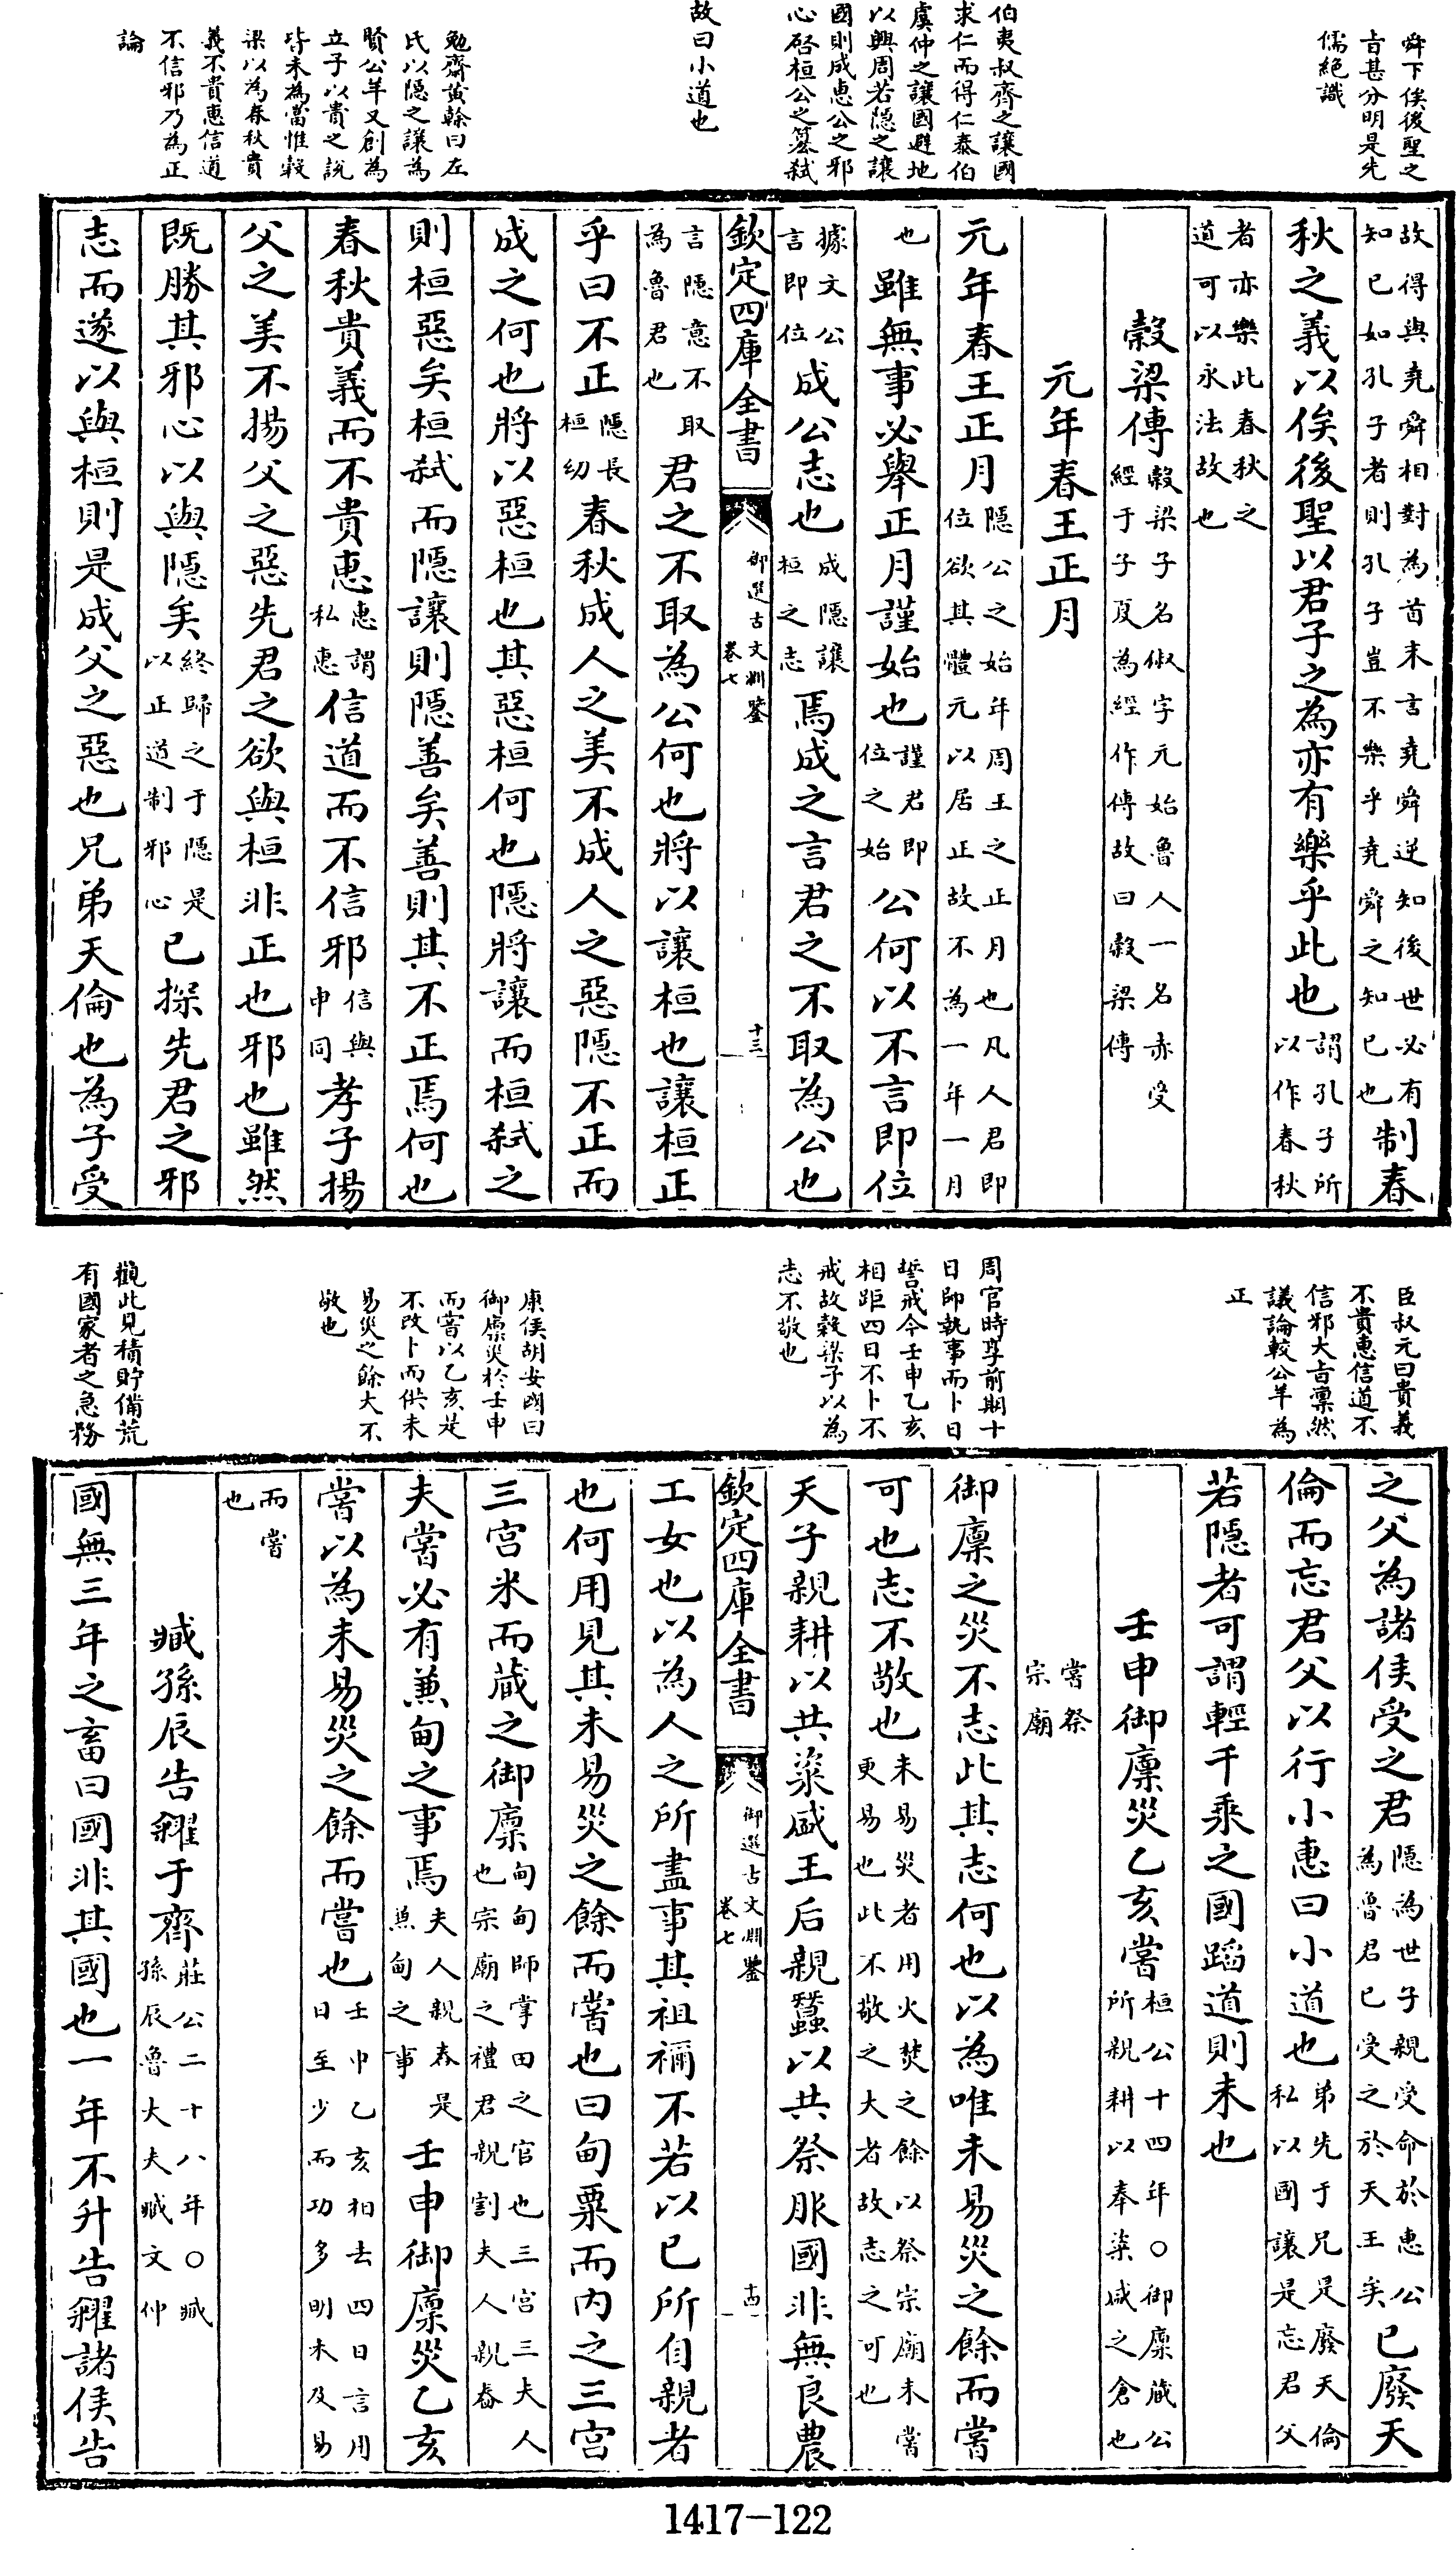 舜下俟後聖之
㫖甚分明是先
儒絶識
伯夷叔齊之讓國
求仁而得仁泰伯
虞仲之讓國避地
以興周若隱之讓
國則成惠公之邪
心啓桓公之簒弑
故曰小道也
勉齋黄榦曰左
氏以隱之讓為
賢公羊又創為
立子以貴之說
皆未為當惟榖
梁以為春秋貴
義不貴惠信道
不信邪乃為正
論
故得與堯舜相對為首末言堯舜逆知後世必有
知已如孔子者則孔子豈不樂乎堯舜之知已也
制春
秋之義以俟後聖以君子之為亦有樂乎此也
謂孔子所
以作春秋
者亦樂此春秋之
道可以永法故也
榖梁傳
榖梁子名俶字元始魯人一名赤受
經于子夏為經作傳故曰榖梁傳
元年春王正月
元年春王正月
隱公之始年周王之正月也凡人君即
位欲其體元以居正故不為一年一月
也
雖無事必舉正月謹始也
謹君即
位之始
公何以不言即位
據文公
言即位
成公志也
成隱讓
桓之志
焉成之言君之不取為公也
欽定四庫全書
御選古文淵鑒
卷七
十三
言隱意不取
為魯君也
君之不取為公何也將以讓桓也讓桓正
乎曰不正
隱長
桓幼
春秋成人之美不成人之惡隱不正而
成之何也將以惡桓也其惡桓何也隱將讓而桓弑之
則桓惡矣桓弑而隱讓則隱善矣善則其不正焉何也
春秋貴義而不貴惠
惠謂
私惠
信道而不信邪
信與
申同
孝子揚
父之美不揚父之惡先君之欲與桓非正也邪也雖然
既勝其邪心以與隱矣
終歸之于隱是
以正道制邪心
已探先君之邪
志而遂以與桓則是成父之惡也兄弟天倫也為子受
臣叔元曰貴義
不貴惠信道不
信邪大㫖凛然
議論較公羊為
正
周官時享前期十
日帥執事而卜日
誓戒今壬申乙亥
相距四日不卜不
戒故榖梁子以為
志不敬也
康侯胡安國曰
御廩災於壬申
而嘗以乙亥是
不改卜而供未
易災之餘大不
敬也
觀此見積貯備荒
有國家者之急務
之父為諸侯受之君
隱為世子親受命於惠公
為魯君已受之於天王矣
已廢天
倫而忘君父以行小惠曰小道也
弟先于兄是廢天倫
私以國讓是忘君父
若隱者可謂輕千乘之國蹈道則未也
壬申御廩災乙亥嘗
桓公十四年○御廩藏公
所親耕以奉粢盛之倉也
嘗祭
宗廟
御廩之災不志此其志何也以為唯未易災之餘而嘗
可也志不敬也
未易災者用火焚之餘以祭宗廟未嘗
更易也此不敬之大者故志之可也
天子親耕以共粢盛王后親蠶以共祭服國非無良農
欽定四庫全書
御選古文淵鑒
卷七
十四
工女也以為人之所盡事其祖禰不若以已所自親者
也何用見其未易災之餘而嘗也曰甸粟而内之三宫
三宫米而藏之御廩
甸甸師掌田之官也三宫三夫人
也宗廟之禮君親割夫人親舂
夫嘗必有兼甸之事焉
夫人親舂是
兼甸之事
壬申御廩災乙亥
嘗以為未易災之餘而嘗也
壬申乙亥相去四日言用
日至少而功多明未及易
而嘗
也
臧孫辰告糴于齊
莊公二十八年○臧
孫辰魯大夫臧文仲
國無三年之畜曰國非其國也一年不升告糴諸侯告
1417-122